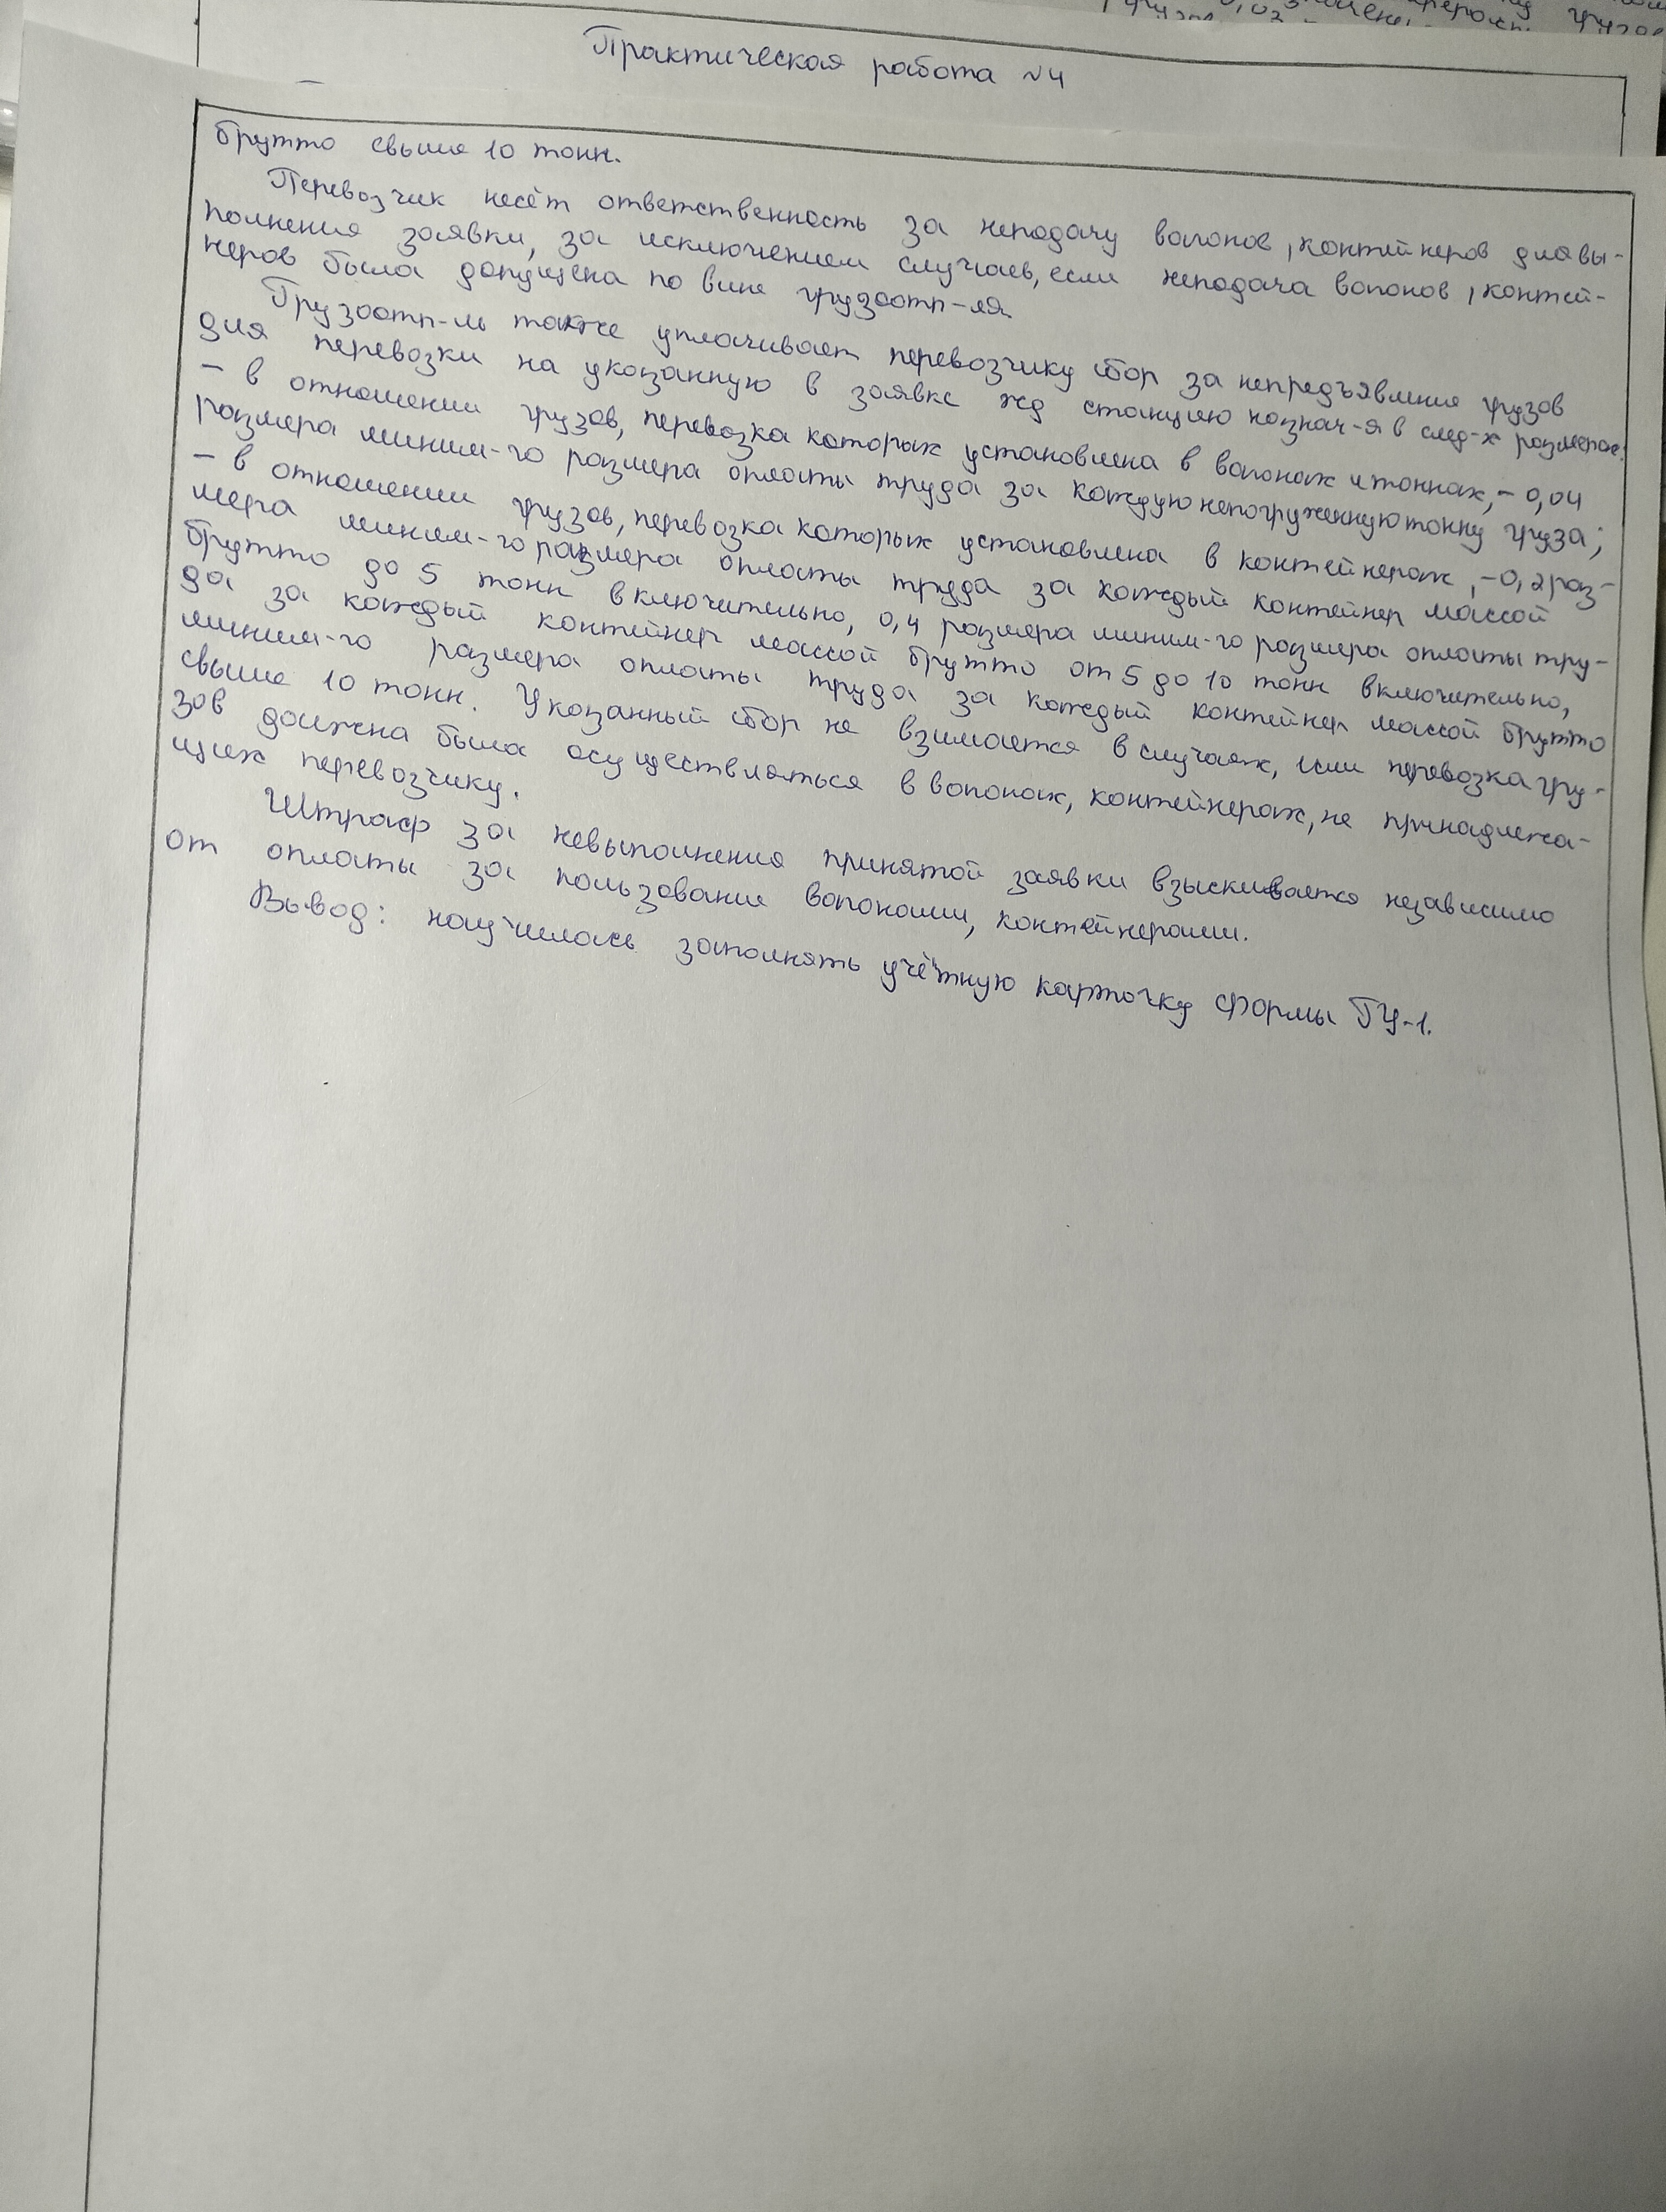 Практическая работа №4
брутто свыше 10 тонн.
Перевозчик несёт ответственность за неподачу вагонов, контейнеров для вы-
полнения заявки, за исключением случаев, если неподача вагонов, контей-
неров была допущена по вине грузоотп-ля.
Грузоотп-ль также уплачивает перевозчику сбор за непредъявление грузов
для перевозки на указанную в заявке жд станцию назнач-я в след-х размерах:
- в отношении грузов, перевозка которых установлена в вагонах и тоннах, - 0,04
размера миним-го размера оплаты труда за каждую непогруженную тонну груза;
- в отношении грузов, перевозка которых установлена в контейнерах, - 0,2 раз-
мера миним-го размера оплаты труда за каждый контейнер массой
брутто до 5 тонн включительно, 0,4 размера миним-го размера оплаты тру-
да за каждый контейнер массой брутто от 5 до 10 тонн включительно,
миним-го размера оплаты труда за каждый контейнер массой брутто
свыше 10 тонн. Указанный сбор не взимается в случаях, если перевозка гру-
зов должна была осуществляться в вагонах, контейнерах, не принадлежа-
щих перевозчику.
Штраф за невыполнения принятой заявки взыскивается независимо
от оплаты за пользование вагонами, контейнерами.
Вывод: научилась заполнять учётную карточку формы ГУ-1.